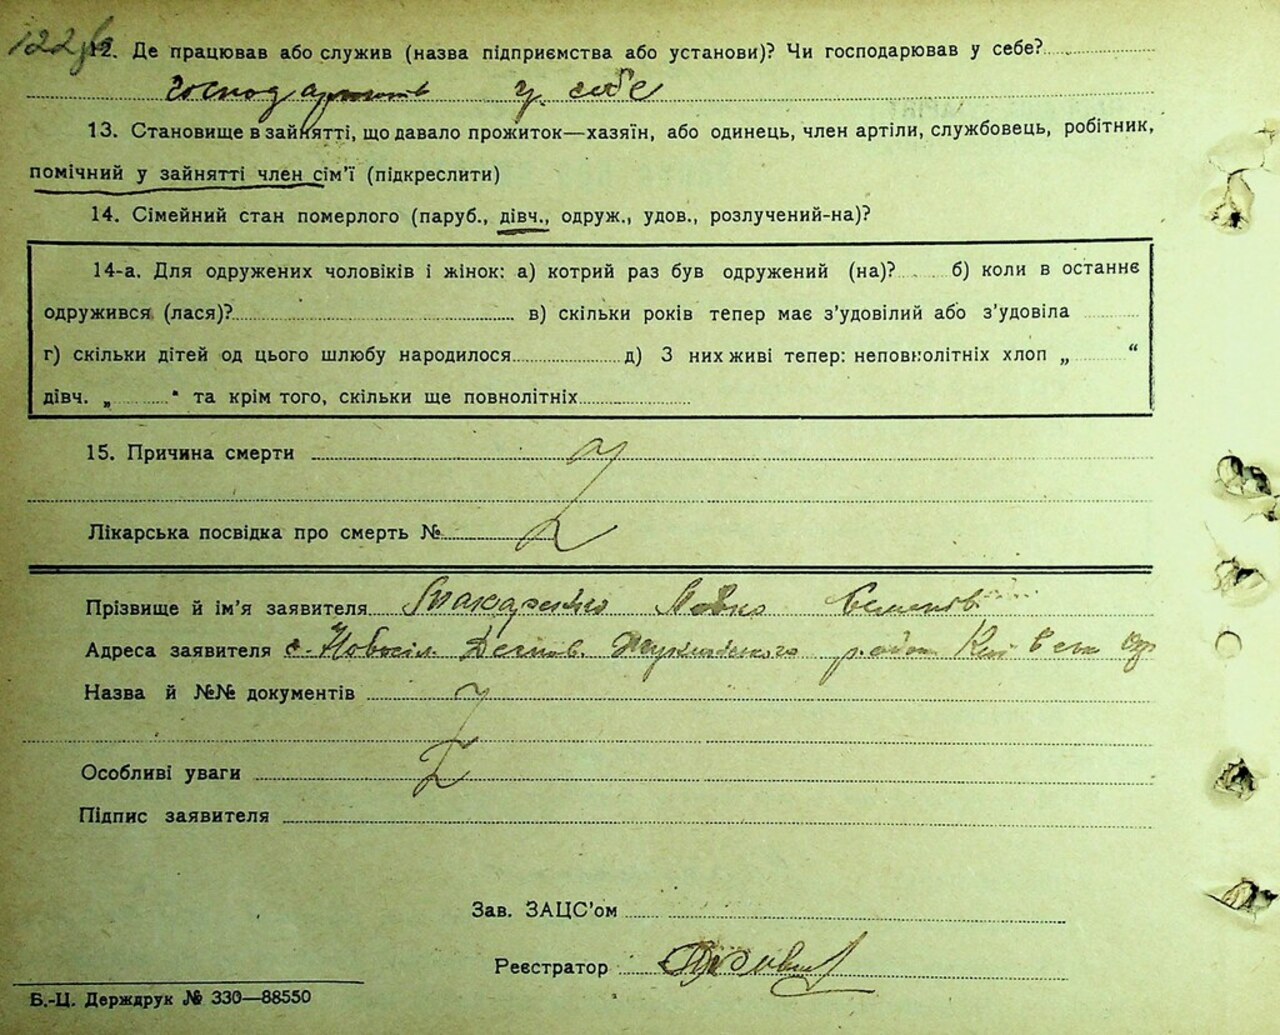 12. Де працював або служив (назва підприємства або установи)? Чи господарював у себе?
у себе
13. Становище в зайнятті, що давало прожиток—хазяїн, або одинець, член артіли, службовець, робітник,
помічний у зайнятті член сім'ї (підкреслити)
14. Сімейний стан померлого (паруб., дівч., одруж., удов., розлучений-на)?
14-а. Для одружених чоловіків і жінок: а) котрий раз був одружений (на)? б) коли в останнє
одружився (лася)? в) скільки років тепер має з'удовілий або з'удовіла
г) скільки дітей од цього шлюбу народилося д) З них живі тепер: неповнолітніх хлоп „ “
дівч. „ “ та крім того, скільки ще повнолітніх
15. Причина смерти
Лікарська посвідка про смерть №
Прізвище й ім'я заявителя Макаренко
Адреса заявителя с.
Назва й №№ документів
Особливі уваги
Підпис заявителя
Зав. ЗАЦС'ом
Реєстратор
Б.-Ц. Держдрук № 330—88550